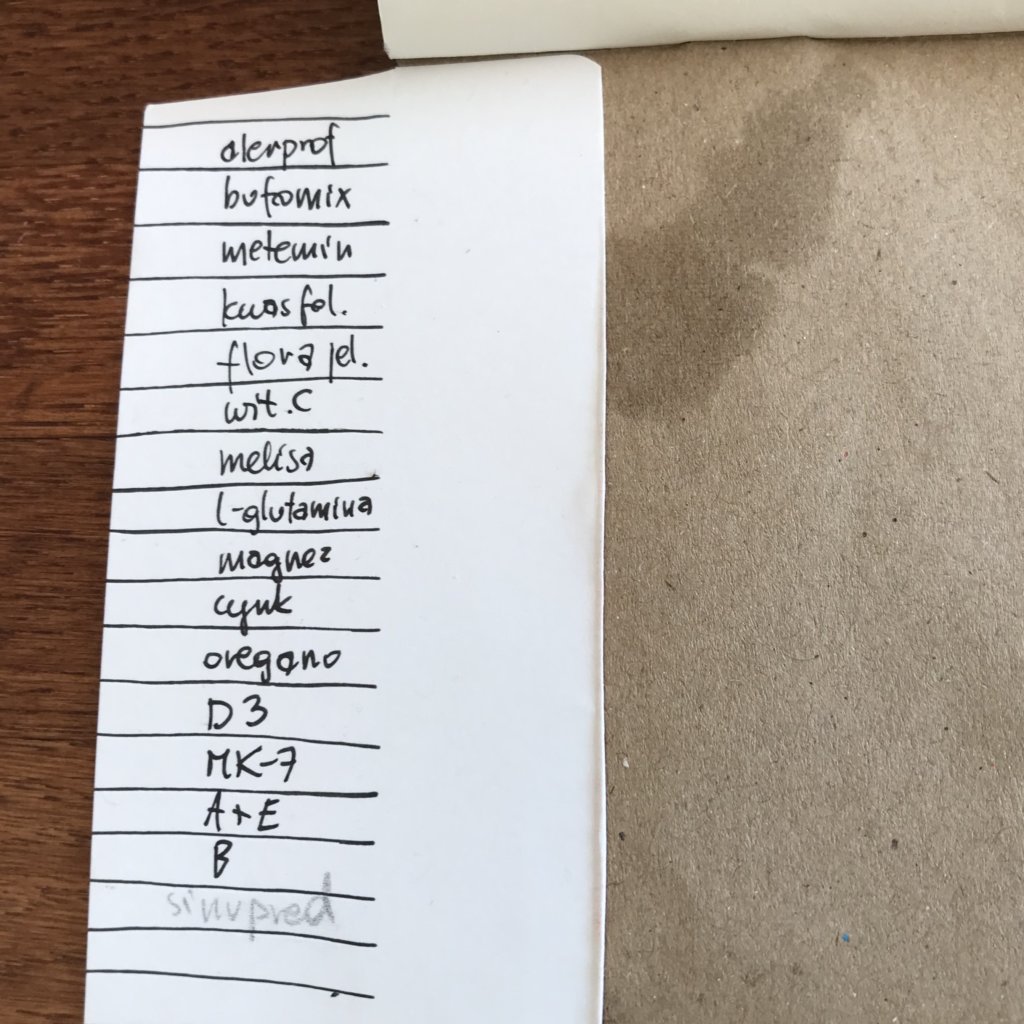 alerprof
bufomix
metemin
kwas fol.
flora jel.
wit. C
melisa
l-glutamina
magnez
cynk
oregano
D3
MK-7
A+E
B
sinupred